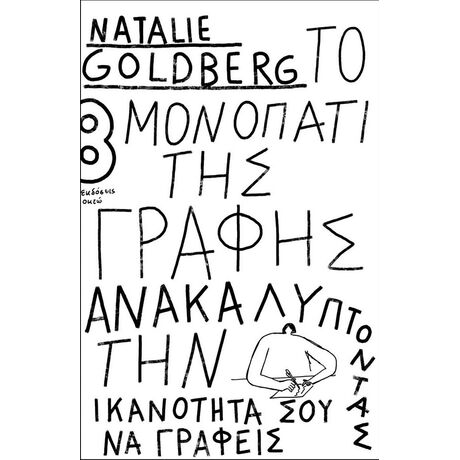 NATALIE
GOLDBERG ΤΟ
ΜΟΝΟΠΑΤΙ
8
εκδόσεις
οκτώ
ΤΗΣ
ΓΡΑΦΗΣ
ΑΝΑΚΑΛΥΠΤΟΝΤΑΣ
ΤΗΝ
ΙΚΑΝΟΤΗΤΑ ΣΟΥ
ΝΑ ΓΡΑΦΕΙΣ